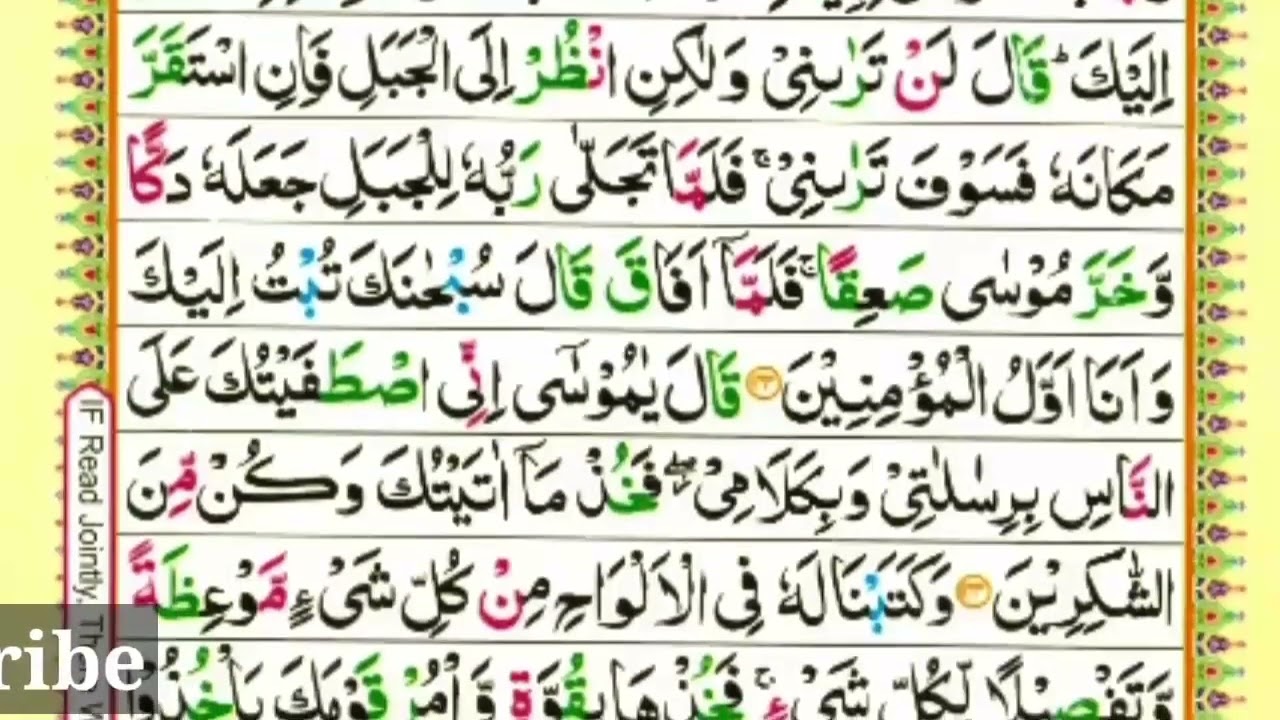 اِلَيْكَ ؕ قَالَ لَنْ تَرٰىنِيْ وَلٰكِنِ انْظُرْ اِلَى الْجَبَلِ فَاِنِ اسْتَقَرَّ
مَكَانَهٗ فَسَوْفَ تَرٰىنِيْ ۚ فَلَمَّا تَجَلّٰى رَبُّهٗ لِلْجَبَلِ جَعَلَهٗ دَكًّا
وَّخَرَّ مُوْسٰى صَعِقًا ۚ فَلَمَّاۤ اَفَاقَ قَالَ سُبْحٰنَكَ تُبْتُ اِلَيْكَ
وَاَنَا اَوَّلُ الْمُؤْمِنِيْنَ قَالَ يٰمُوْسٰۤى اِنِّى اصْطَفَيْتُكَ عَلَى
النَّاسِ بِرِسٰلٰتِيْ وَبِكَلَامِيْ ۖ فَخُذْ مَاۤ اٰتَيْتُكَ وَكُنْ مِّنَ
الشّٰكِرِيْنَ وَكَتَبْنَا لَهٗ فِى الْاَلْوَاحِ مِنْ كُلِّ شَيْءٍ مَّوْعِظَةً
وَّتَفْصِيْلًا لِّكُلِّ شَيْءٍ ۚ فَخُذْهَا بِقُوَّةٍ وَّاْمُرْ قَوْمَكَ يَاْخُذُوْا
IF Read Jointly, The
ribe